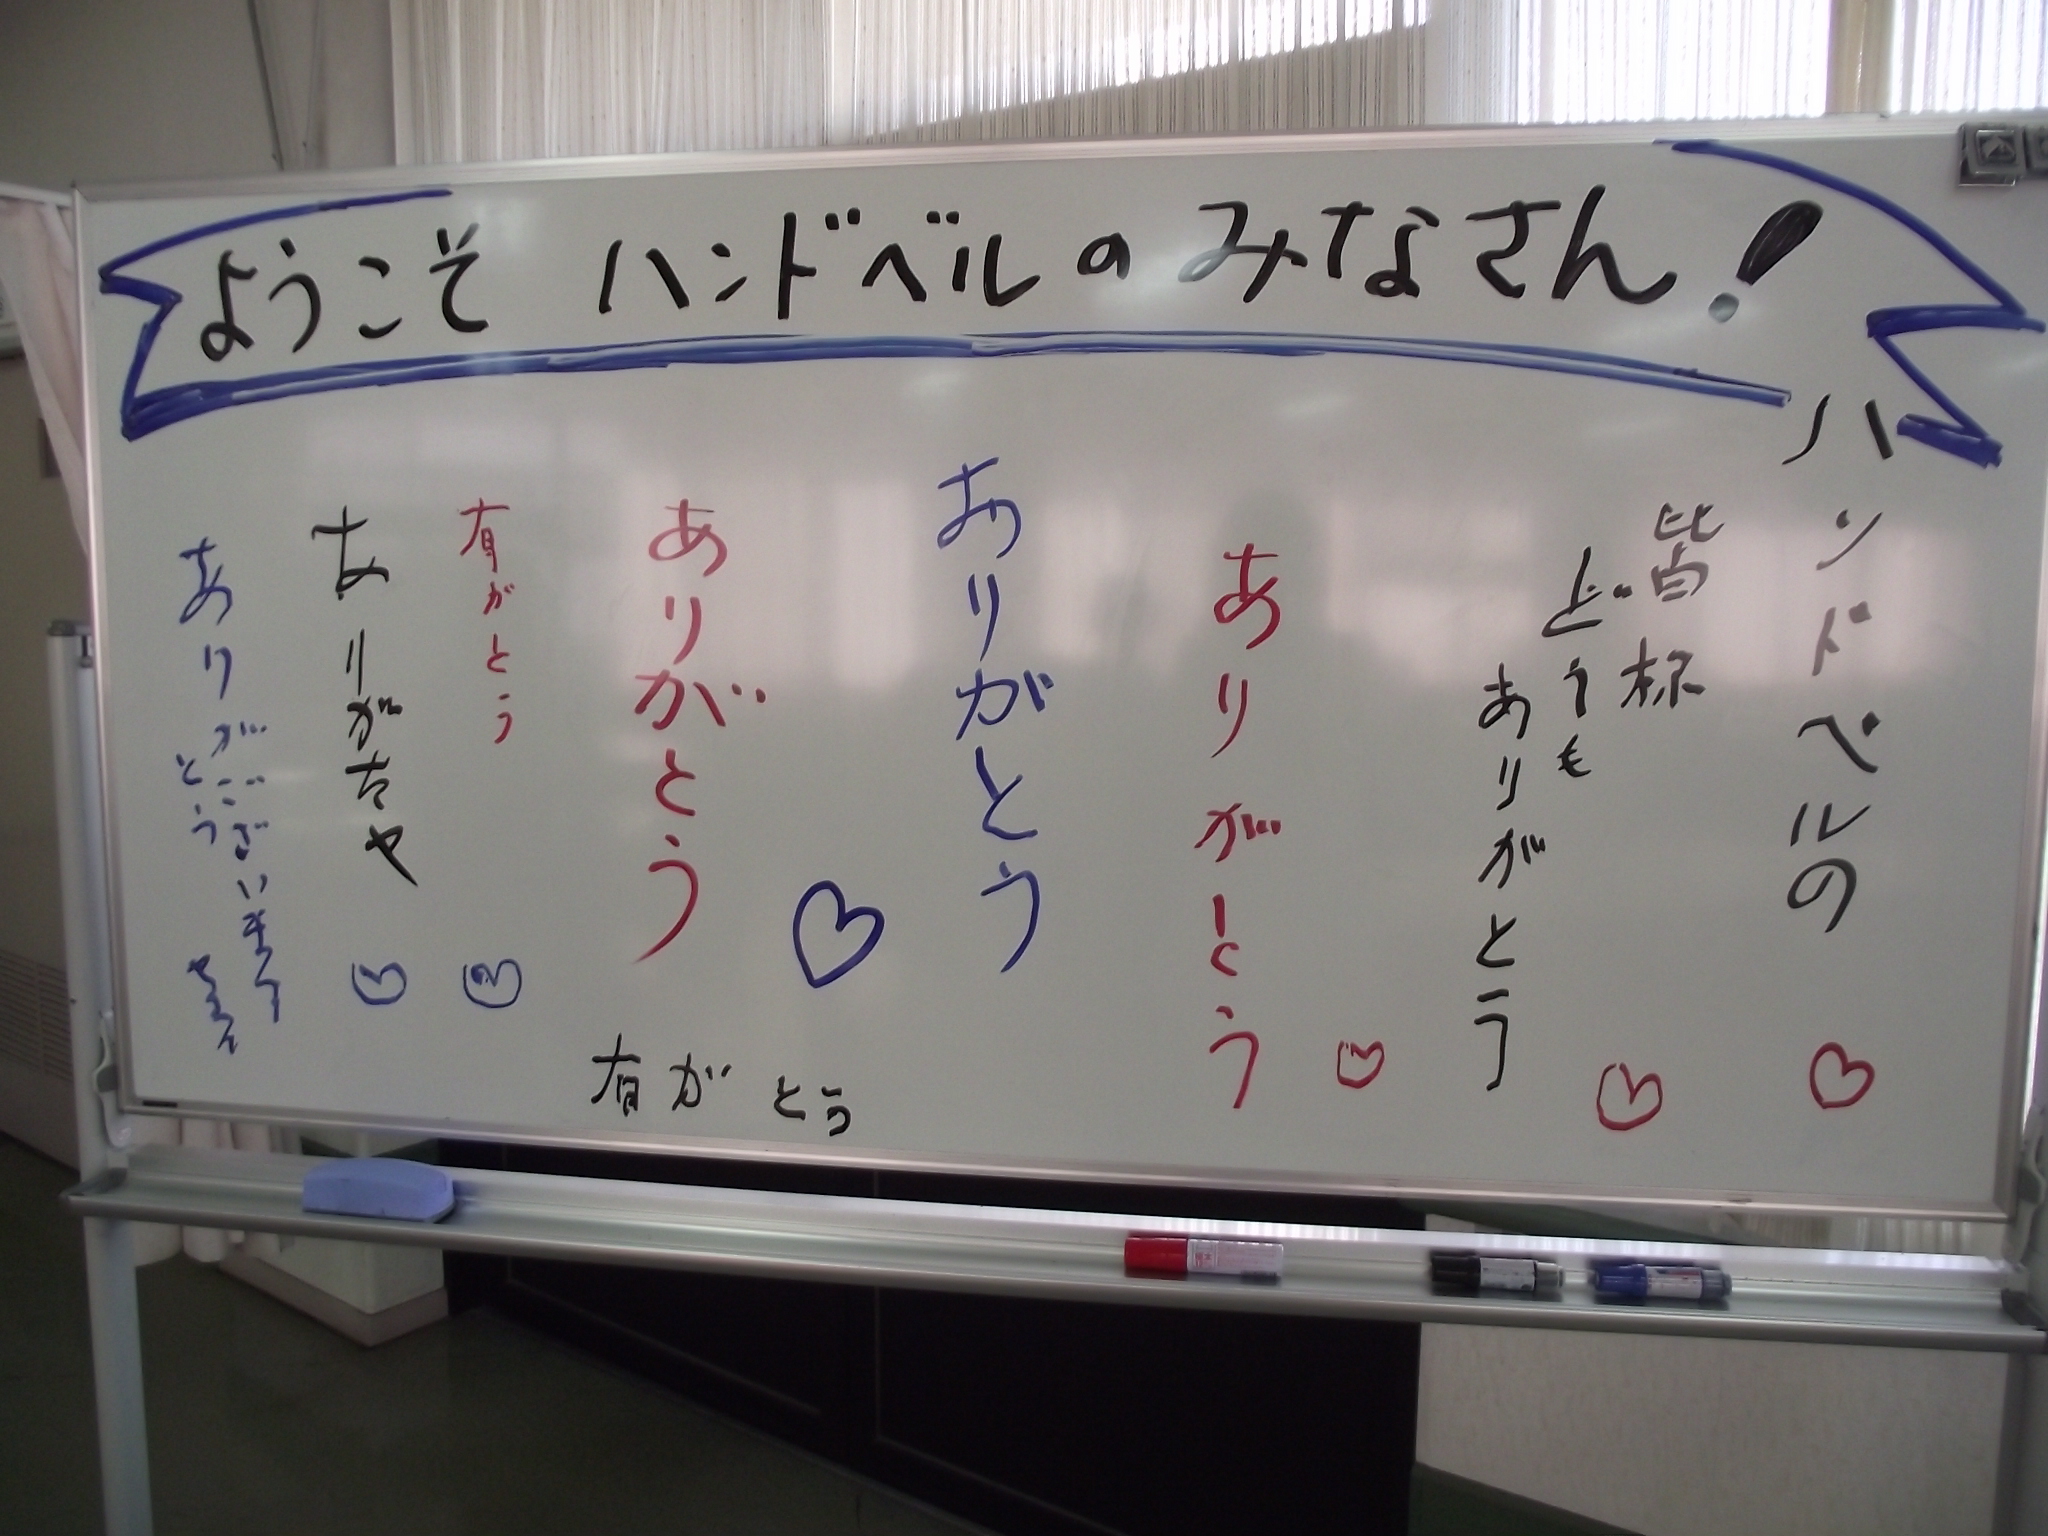 ようこそ ハンドベルのみなさん!
ハンドベルの
皆様
どうも
ありがとう
ありがとう
ありがとう
ありがとう
有がとう
ありがたや
ありがとう
ございます
有がとう